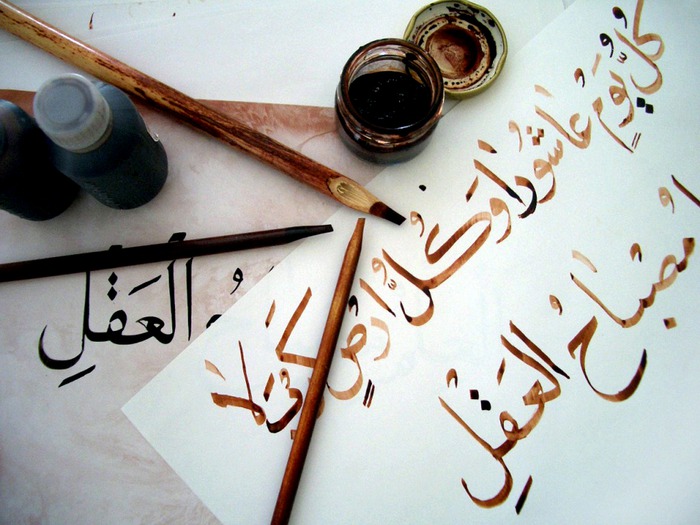 كُلُّ يَومٍ عَاشورا وَكُلُّ ارضٍ كَربَلا
مصبَاحُ العَقلِ
العَقلِ